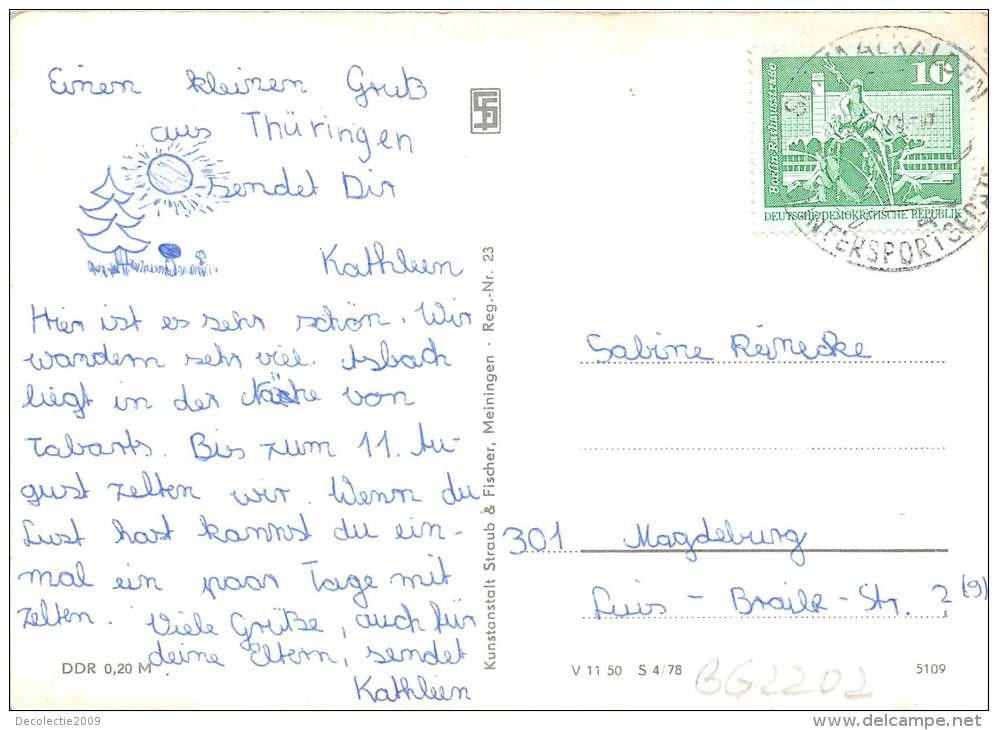 Einen kleinen Gruß
aus Thüringen
sendet Dir
Kathleen
Hier ist es sehr schön. Wir
wandern sehr viel. Asbach
liegt in der von
Tabarts. Bis zum 11. Au-
gust zelten wir. Wenn du
Lust hast kannst du ein-
mal ein paar Tage mit
zelten. Viele Grüße, auch für
deine Eltern, sendet
Kathleen
DDR 0,20 M
Kunstanstalt Straub & Fischer, Meiningen · Reg.-Nr. 23
10
Berlin · Rathausstraße
DEUTSCHE DEMOKRATISCHE REPUBLIK
WINTERSPORTGEBIET
Sabine Reinecke
301 Magdeburg
Luis - Braile - Str. ? (9)
V 11 50 S 4/78
5109
BG2202
Decolectie2009
delcampe.net